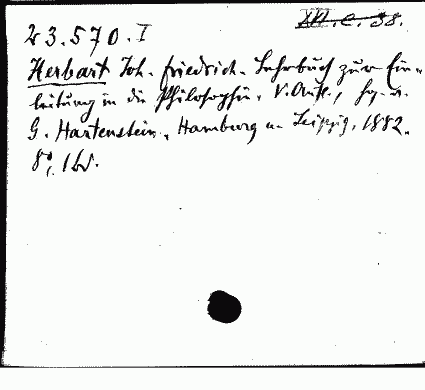 XVI. C. 38.
23.570.I
Herbart Joh. Friedrich. Lehrbuch zur Ein-
leitung in die Philosophie. V. Aufl., hg. v.
G. Hartenstein. Hamburg u. Leipzig. 1882.
8°, 1 Bd.